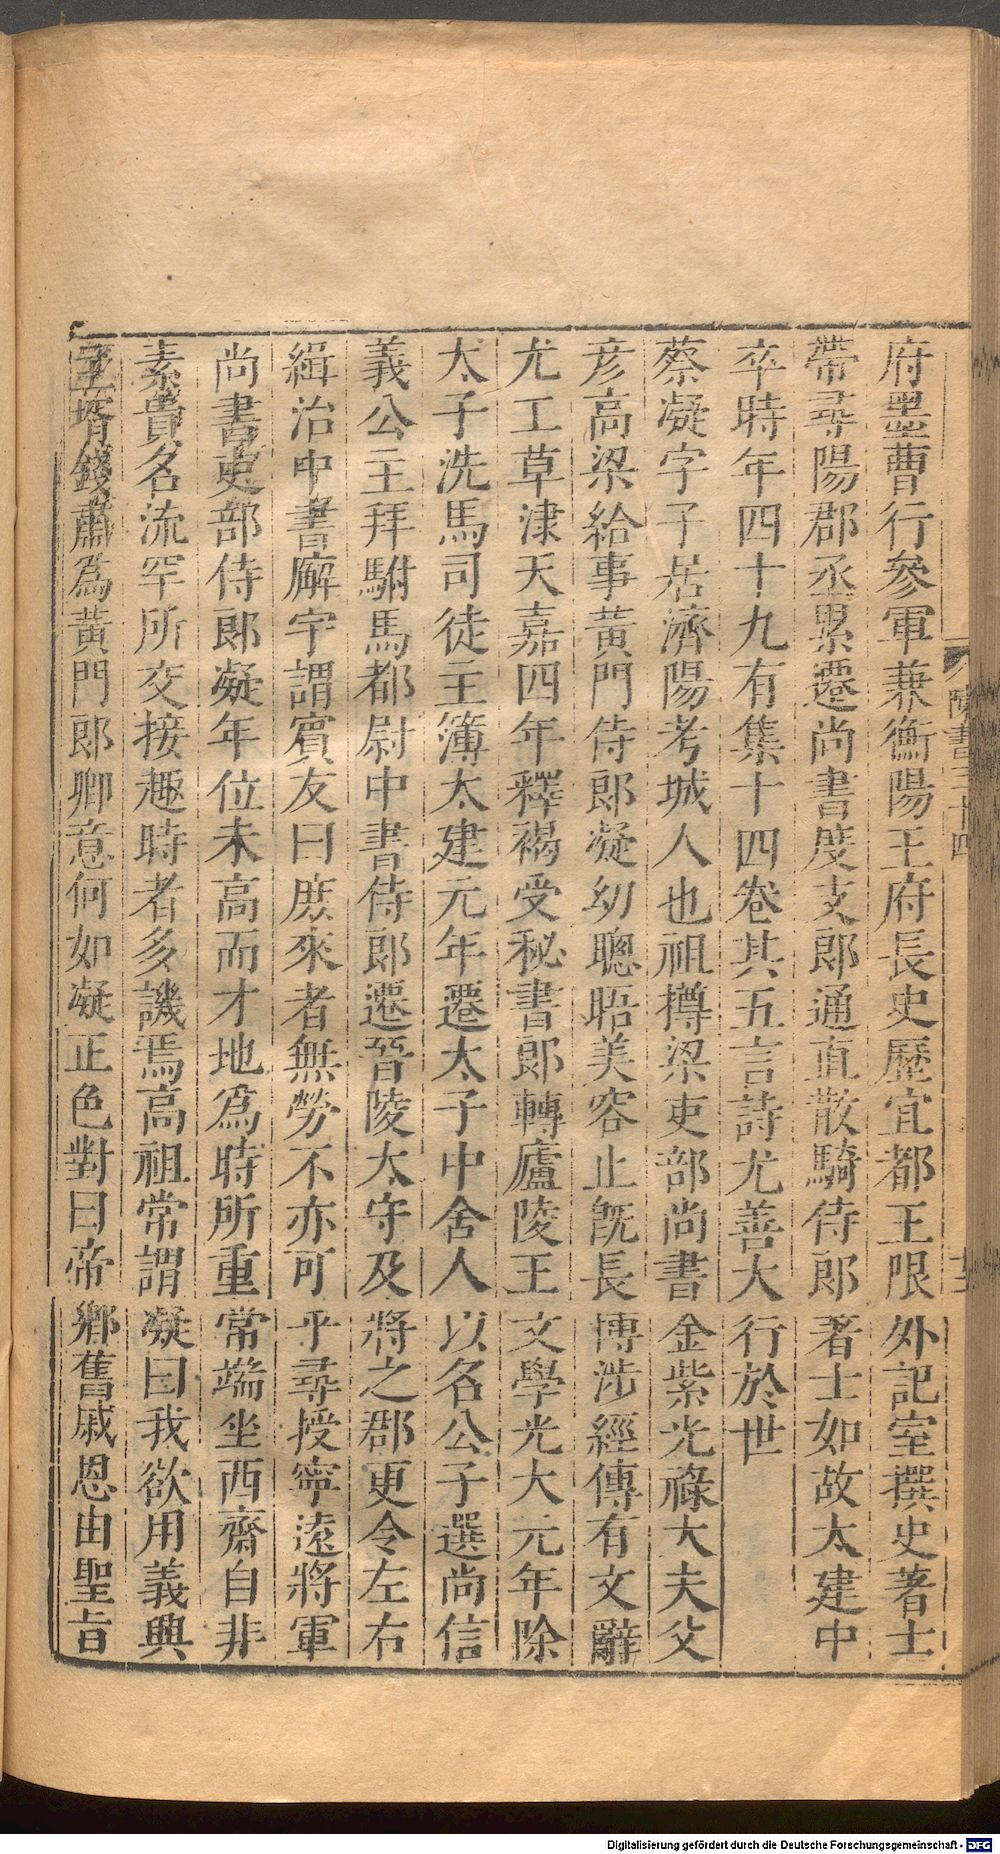 府墨曹行參軍兼衡陽王府長史歷宜都王限外記室撰史著士
帶尋陽郡丞累遷尚書度支郎通直散騎侍郎著士如故太建中
卒時年四十九有集十四卷其五言詩尤善大行於世
蔡凝字子居濟陽考城人也祖撙梁吏部尚書金紫光祿大夫父
彦高梁給事黃門侍郎凝幼聰晤美容止旣長博涉經傳有文辭
尤工草㳍天嘉四年釋褐受秘書郎轉廬陵王文學光大元年除
太子洗馬司徒主簿太建元年遷太子中舍人以名公子選尚信
義公主拜駙馬都尉中書侍郎遷晉陵太守及將之郡更令左右
緝治中書廨宇謂賓友曰庶來者無勞不亦可乎尋授寧遠將軍
尚書吏部侍郎凝年位未高而才地爲時所重常端坐西齋自非
素貴名流罕所交接趣時者多譏焉高祖常謂凝曰我欲用義興
主壻錢肅爲黃門郎卿意何如凝正色對曰帝鄉舊戚恩由聖旨
陳書三十四
Digitalisierung gefördert durch die Deutsche Forschungsgemeinschaft - DFG